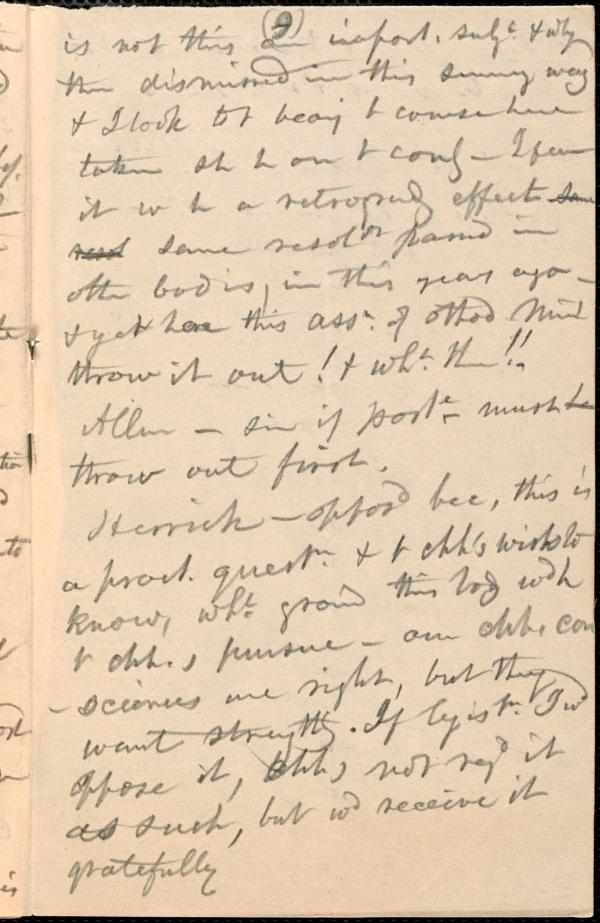 (9)
is not this an import. subjt. & why
then dismissed in this summy way
& I look to t beaig t course here
taken sh h on t cong - I fear
it w h a retrograde effect same
resol same resoltn passd in
othr bodies, in this years ago -
& yet here this assn. of othod Min
throw it out! & wht. thn!!
Allen - sir if postd - must be
throw out first.
Herrick - opposd bec, this is
a pract. questn & t chhs wish to
know, wht. groud this body wdh
t chh.s pursue - our chhs. con
-sciences are right, but they
want strength. If legistn. I wd
oppose it, chhs not regd it
as such, but wd receive it
gratefully